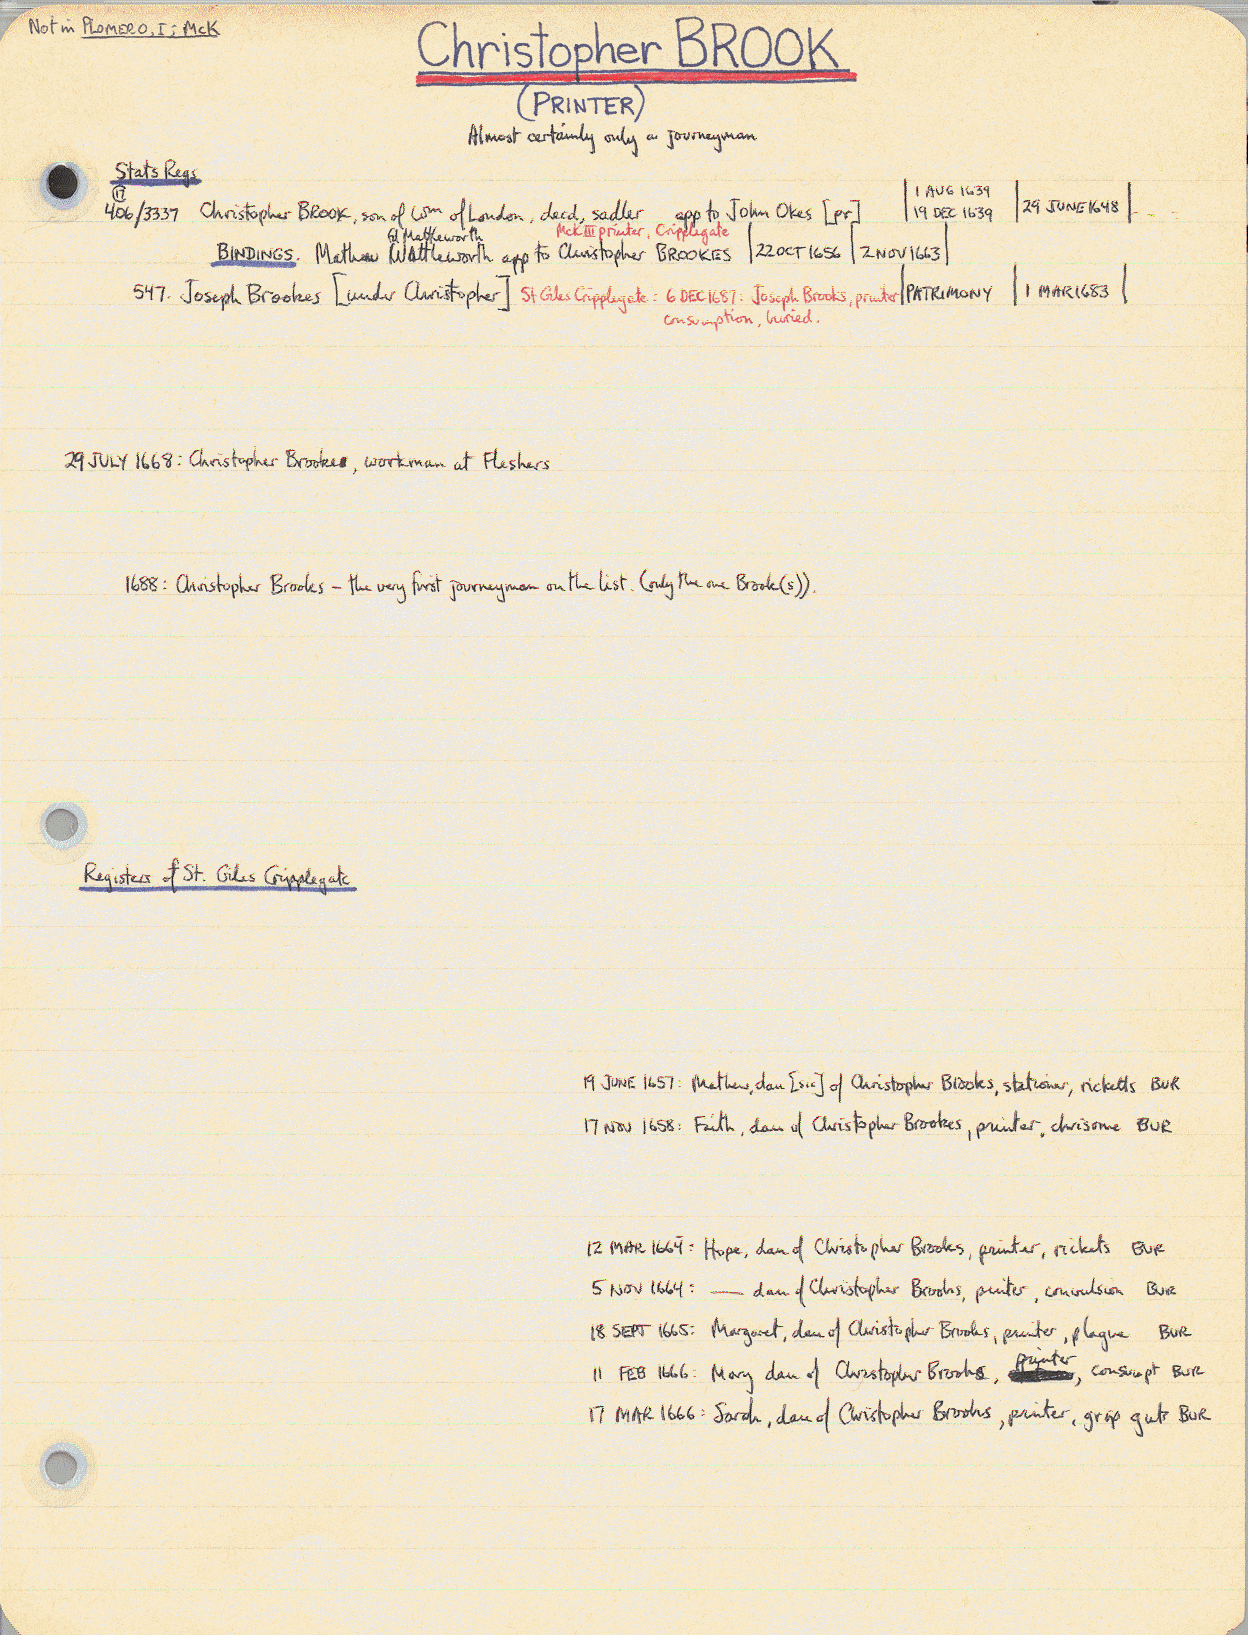 Not in PLOMER O, I; McK
Christopher BROOK
(PRINTER)
Almost certainly only a journeyman
Stats Regs
17
1 AUG 1639
406/3337 Christopher BROOK, son of Wm of London, decd, sadler app to John Okes [pr] 19 DEC 1639 29 JUNE 1648
McK III printer, Cripplegate
Mattleworth
BINDINGS. Mathew Wattleworth app to Christopher BROOKES 22 OCT 1656 2 NOV 1663
547. Joseph Brookes [under Christopher] St Giles Cripplegate: 6 DEC 1687: Joseph Brooks, printer PATRIMONY 1 MAR 1683
consumption, buried.
29 JULY 1668: Christopher Brookes, workman at Fleshers
1688: Christopher Brooks – the very first journeyman on the list. (only the one Brook(s)).
Registers of St. Giles Cripplegate
19 JUNE 1657: Mathew, dau [sic] of Christopher Brooks, stationer, ricketts BUR
17 NOV 1658: Faith, dau of Christopher Brookes, printer, chrisome BUR
12 MAR 1664: Hope, dau of Christopher Brooks, printer, rickets BUR
5 NOV 1664: — dau of Christopher Brooks, printer, convulsion BUR
18 SEPT 1665: Margaret, dau of Christopher Brooks, printer, plague BUR
11 FEB 1666: Mary dau of Christopher Brooks, printer, consumpt BUR
17 MAR 1666: Sarah, dau of Christopher Brooks, printer, grip guts BUR